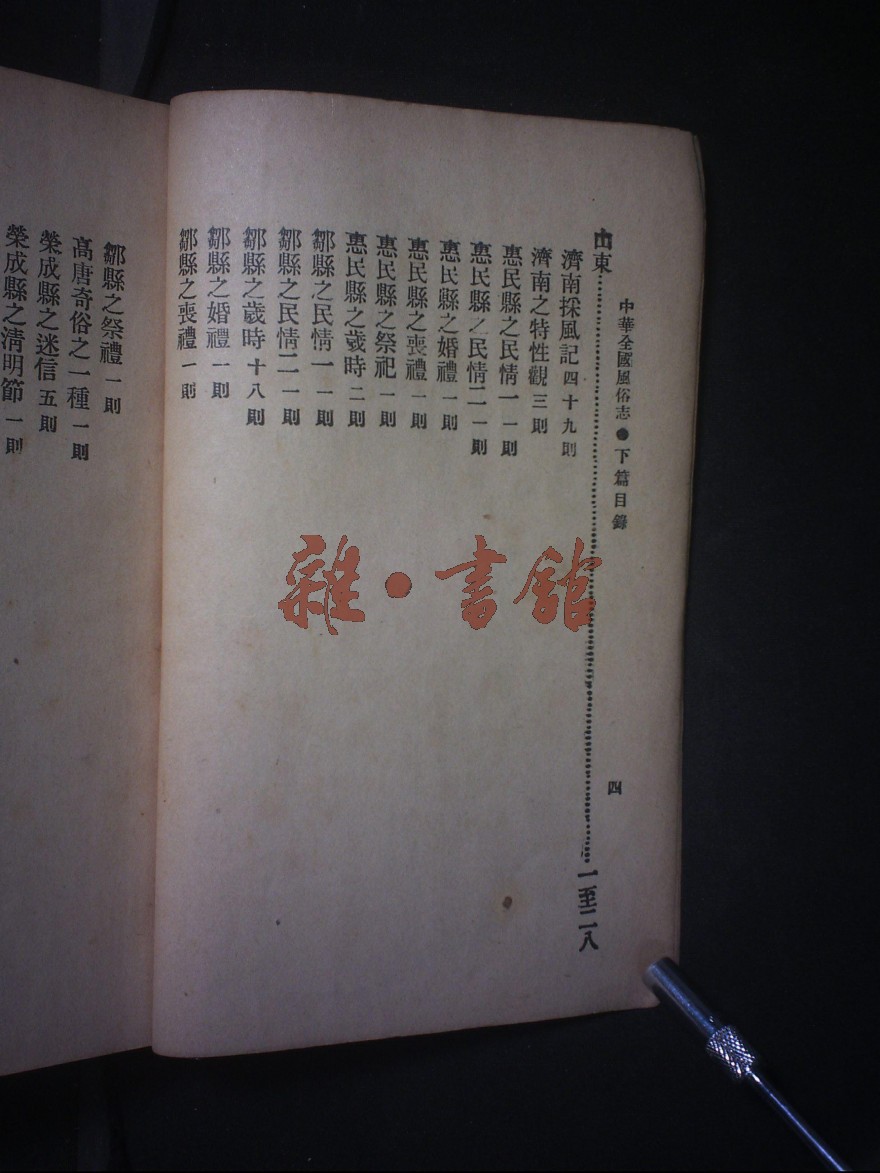 中華全國風俗志●下篇目錄 四
山東 一至二八
濟南採風記 四十九則
濟南之特性觀 三則
惠民縣之民情一 一則
惠民縣之民情二 一則
惠民縣之婚禮 一則
惠民縣之喪禮 一則
惠民縣之祭祀 一則
惠民縣之歲時 二則
鄒縣之民情一 一則
鄒縣之民情二 一則
鄒縣之歲時 十八則
鄒縣之婚禮 一則
鄒縣之喪禮 一則
鄒縣之祭禮 一則
高唐奇俗之一種 一則
榮成縣之迷信 五則
榮成縣之淸明節 一則
雜·書館